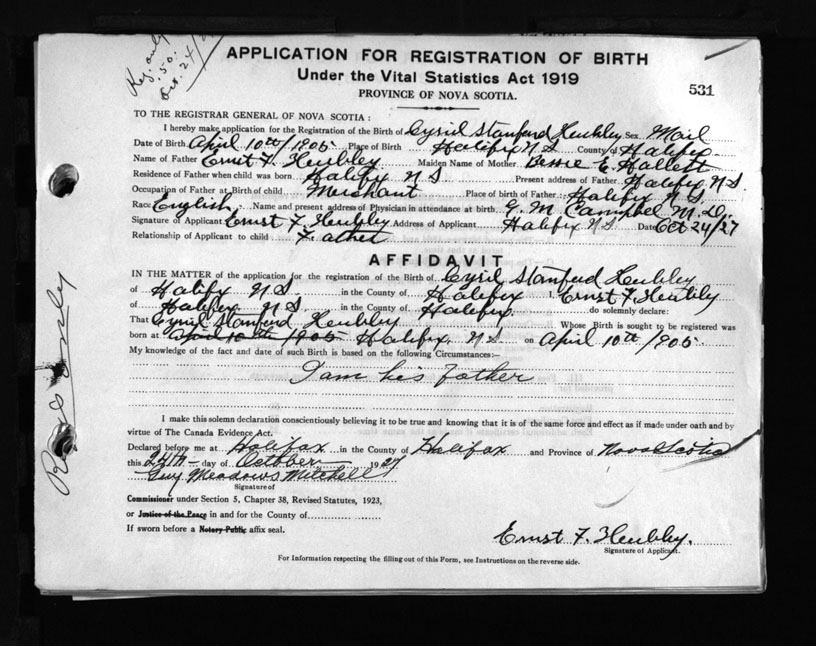 Reg. only
.50.
Oct. 24/27
APPLICATION FOR REGISTRATION OF BIRTH
Under the Vital Statistics Act 1919
PROVINCE OF NOVA SCOTIA.
531
TO THE REGISTRAR GENERAL OF NOVA SCOTIA :
I hereby make application for the Registration of the Birth of Cyril Stanford Heubley Sex Mail
Date of Birth April 10th/1905 Place of Birth Halifix N S County of Halifix
Name of Father Ernst F. Heubley Maiden Name of Mother Bessie E. Hallett
Residence of Father when child was born Halifix N S Present address of Father Halifix N S.
Occupation of Father at Birth of child Merchant Place of birth of Father Halifix N S.
Race English Name and present address of Physician in attendance at birth G. M. Campbel M. D.
Signature of Applicant Ernst F. Heubley Address of Applicant Halifix N S Date Oct 24/27
Relationship of Applicant to child Father
AFFIDAVIT
IN THE MATTER of the application for the registration of the Birth of Cyril Stanford Heubley
of Halifix N S. in the County of Halifix Ernst F. Heubley
of Halifix N S in the County of Halifix do solemnly declare:
That Cyril Stanford Heubley Whose Birth is sought to be registered was
born at April 10th/1905 Halifix N S on April 10th/1905
My knowledge of the fact and date of such Birth is based on the following Circumstances:—
I am his father
I make this solemn declaration conscientiously believing it to be true and knowing that it is of the same force and effect as if made under oath and by
virtue of The Canada Evidence Act.
Declared before me at Halifax in the County of Halifax and Province of Nova Scotia
this 24th day of October 1927
Guy Meadows Mitchell
Signature of
Commissioner under Section 5, Chapter 38, Revised Statutes, 1923,
or Justice of the Peace in and for the County of
If sworn before a Notary Public affix seal.
Ernst F. Heubley.
Signature of Applicant.
For Information respecting the filling out of this Form, see Instructions on the reverse side.
Reg. only